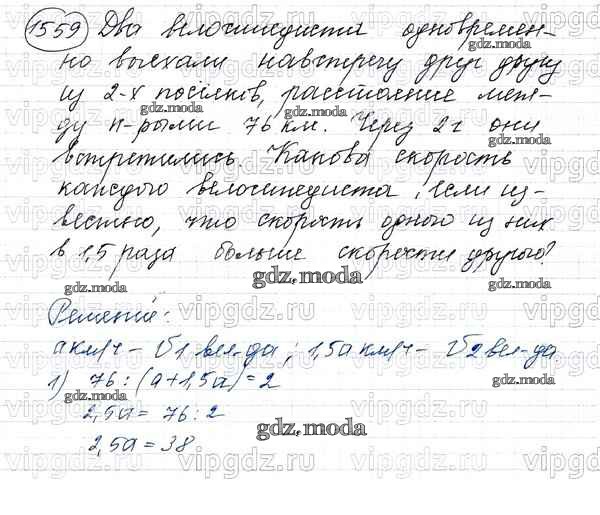 1559 Два велосипедиста одновремен-
но выехали навстречу друг другу
из 2-х посёлков, расстояние меж-
ду к-рыми 76 км. Через 2 ч они
встретились. Какова скорость
каждого велосипедиста, если из-
вестно, что скорость одного из них
в 1,5 раза больше скорости другого?
Решение:
a км/ч - V1 вел-да; 1,5a км/ч - V2 вел-да
1) 76 : (a + 1,5a) = 2
2,5a = 76 : 2
2,5a = 38